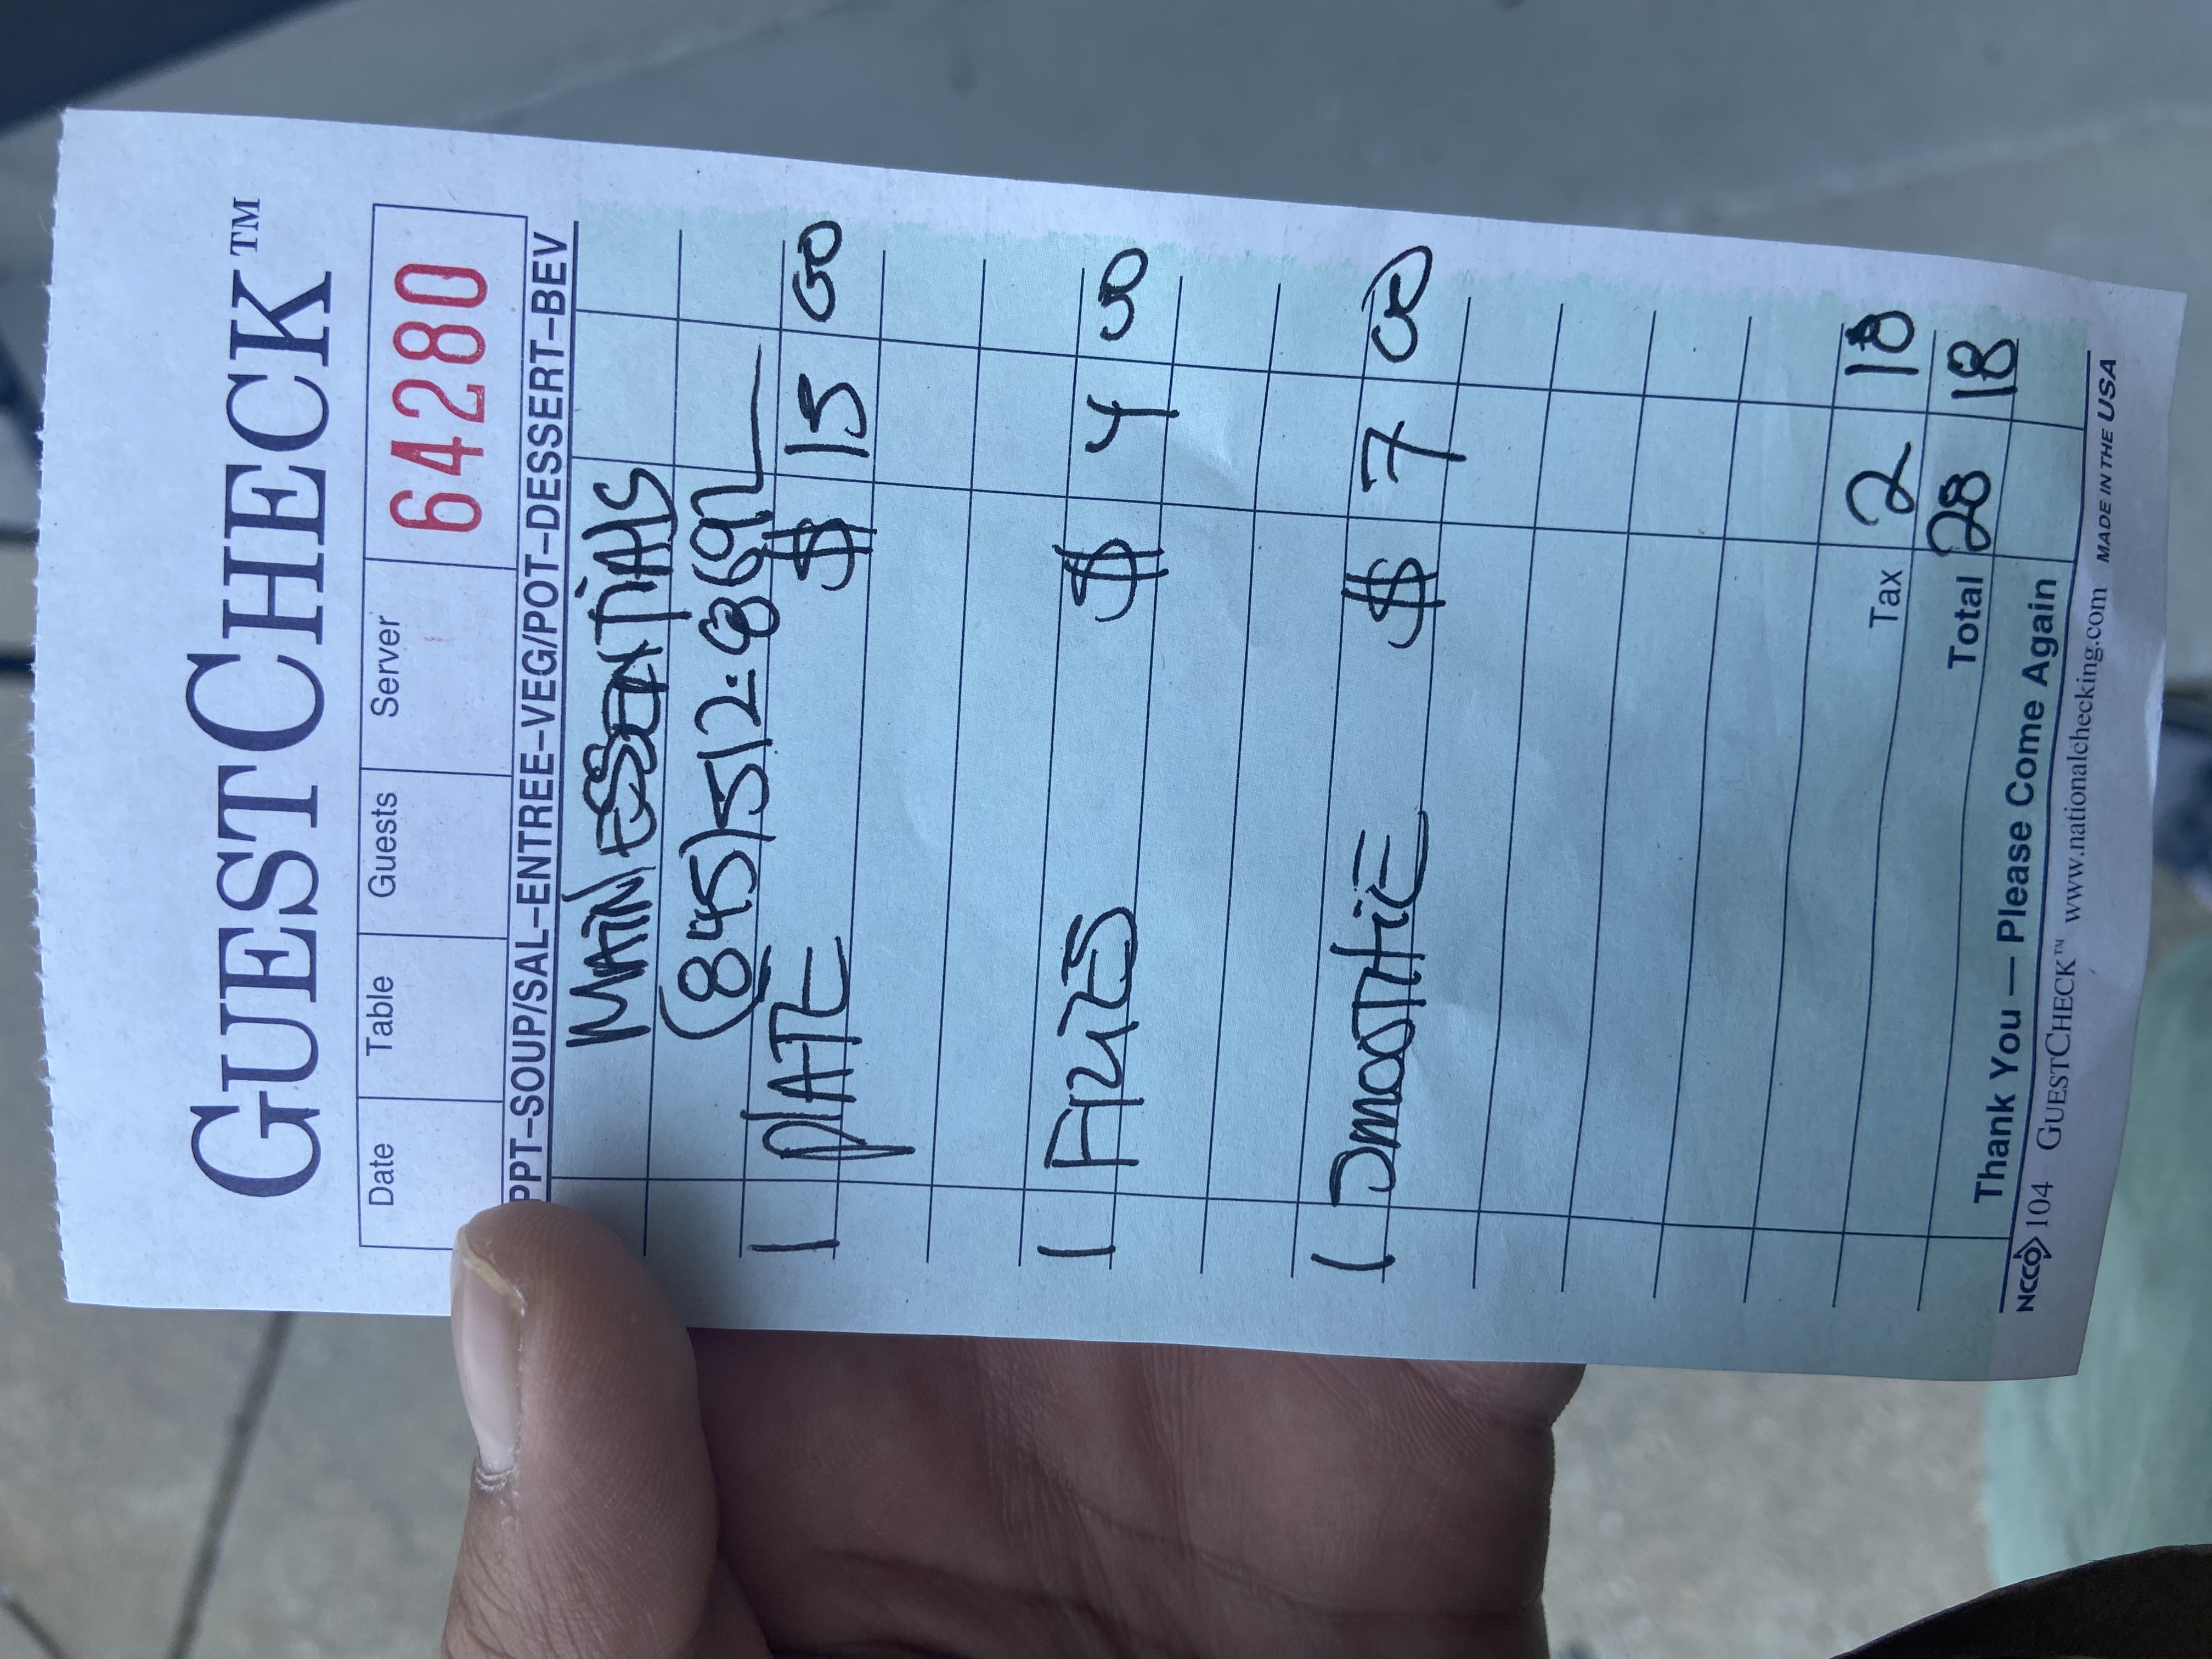 GUESTCHECK™
Date Table Guests Server 64280
PPT–SOUP/SAL–ENTREE–VEG/POT–DESSERT–BEV
MAiN ESSENTiAlS
(845) 512-8692
1 PlATE $ 15 00
1 FRIES $ 4 00
1 SmOOTHiE $ 7 00
Tax 2 18
Total 28 18
Thank You — Please Come Again
NCCO 104 GUESTCHECK™ www.nationalchecking.com MADE IN THE USA